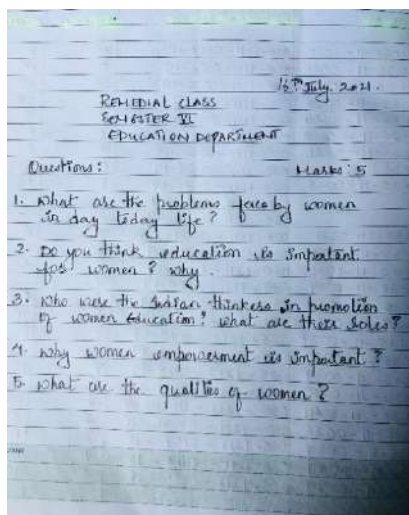 16th July. 2021.
REMEDIAL CLASS
SEMESTER VI
EDUCATION DEPARTMENT
Questions: Marks: 5
1. What are the problems face by women
in day today life?
2. Do you think education is important
for women? why.
3. Who were the Indian thinkers in promotion
of women Education? what are their roles?
4. Why women empowerment is important?
5. What are the qualities of women?